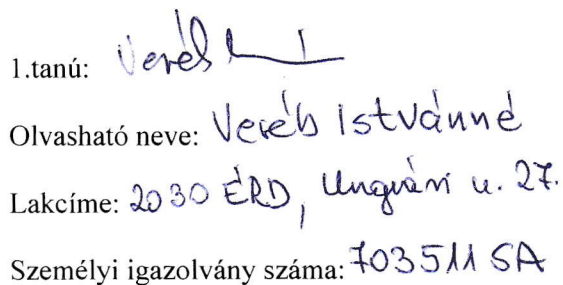 1.tanú: Veréb
Olvasható neve: Veréb Istvánné
Lakcíme: 2030 ÉRD, Ungvári u. 27.
Személyi igazolvány száma: 703511 SA